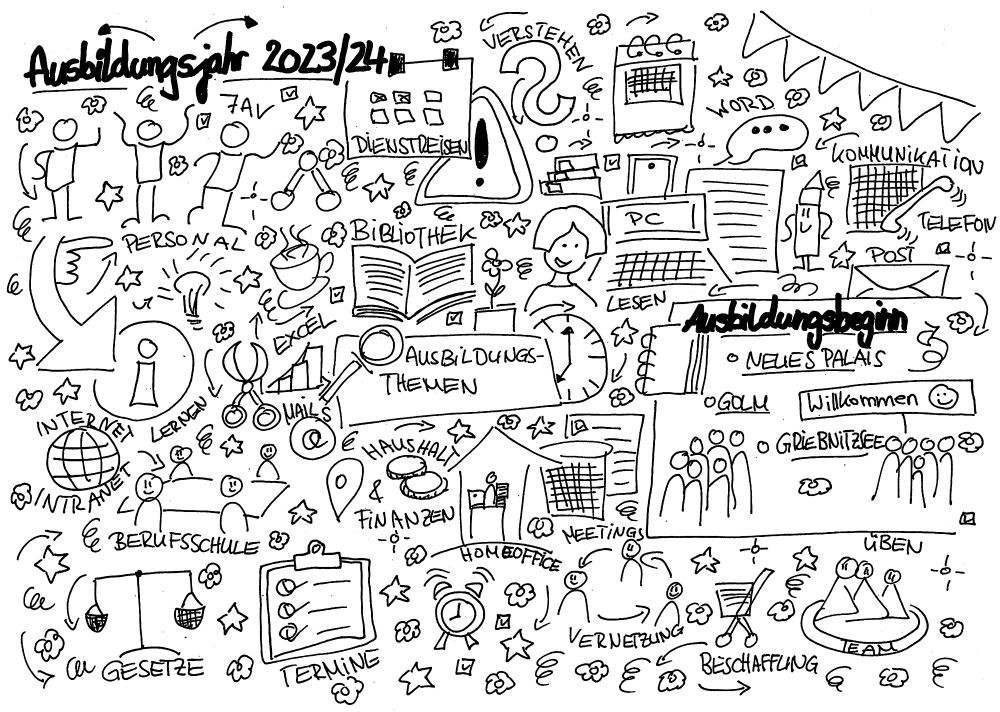 Ausbildungsjahr 2023/24
VERSTEHEN
DIENSTREISEN
WORD
KOMMUNIKATION
TELEFON
POST
PERSONAL
BIBLIOTHEK
PC
LESEN
EXCEL
AUSBILDUNGS-
THEMEN
Ausbildungsbeginn
NEUES PALAIS
GOLM
Willkommen
GRIEBNITZSEE
i
INTERNET
INTRANET
LERNEN
MAILS
@
HAUSHALT
&
FINANZEN
BERUFSSCHULE
HOMEOFFICE
MEETINGS
ÜBEN
GESETZE
TERMINE
VERNETZUNG
BESCHAFFUNG
TEAM